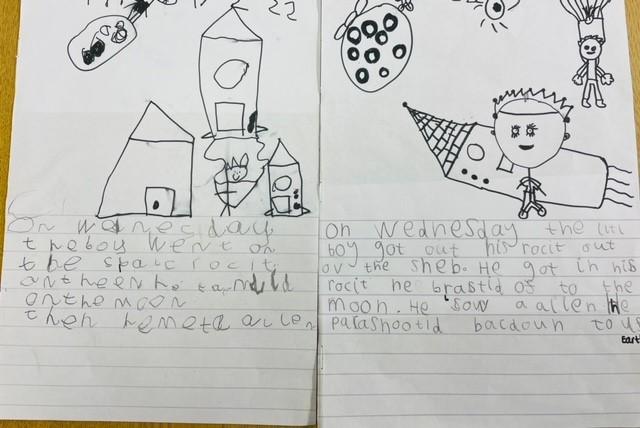 22
On wednec day
the boy went on
the space rocit.
on the moon.
then he met a allen
on Wednesday the liti
boy got out his rocit out
ov the sheb. He got in his
rocit he brastid os to the
moon. He sow a alien He
parashootid bacdoun to us
Earth